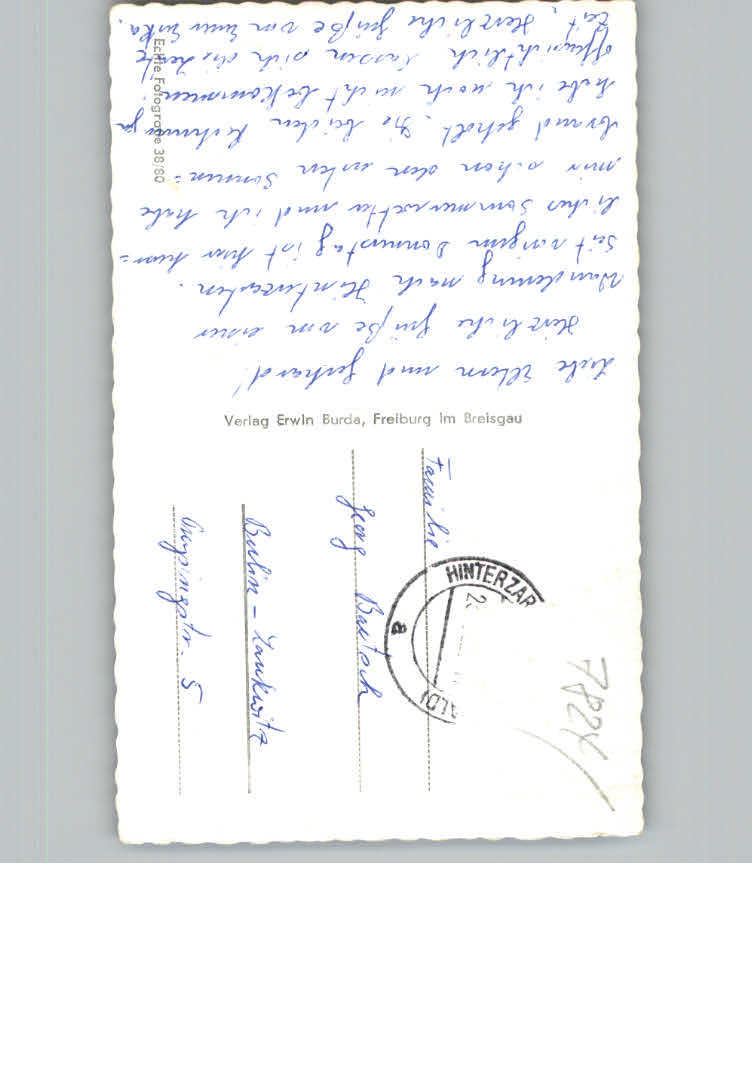 Liebe Eltern und Gerhard!
Herzliche Grüße von einer
Wanderung nach Hinterzarten.
Seit vorigem Donnerstag ist hier herr=
liches Sommerwetter und ich habe
mir schon den ersten Sonnen=
brand geholt. Die beiden
habe ich noch nicht bekommen.
offensichtlich lassen sich die Leute
Zeit. Herzliche Grüße von Eurer
Echte Fotografie 38/80
Verlag Erwin Burda, Freiburg im Breisgau
Familie
Georg Bartsch
Berlin – Lankwitz
5
HINTERZAR
a
7824